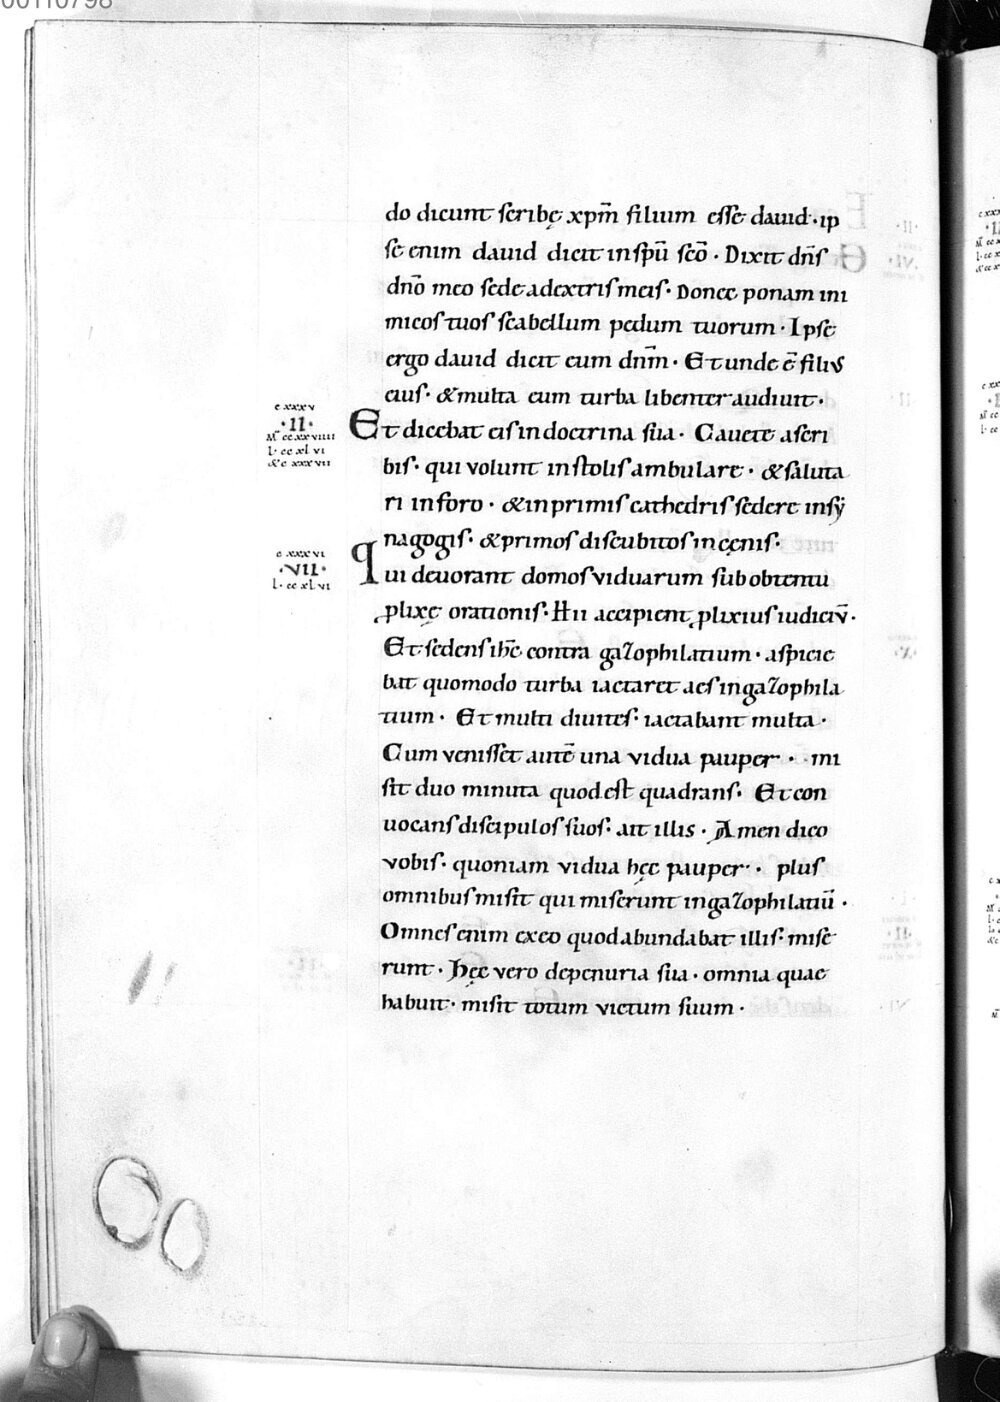 00110798
do dicunt scribę xpm̄ filium esse dauid · ip
se enim dauid dicit in spū scō · Dixit dn̄s
dn̄o meo sede adextris meis · Donec ponam ini
micos tuos scabellum pedum tuorum · Ipse
ergo dauid dicit eum dnm̄ · Et unde ē filius
eius · & multa eum turba libenter audiuit ·
c xxxv
· II ·
M̄ cc xx viiii
L · cc xl vi
&c xxx vii
Et dicebat eis in doctrina sua · Cauete a scri
bis · qui volunt in stolis ambulare · & saluta
ri in foro · & in primis cathedris sedere in sẏ
nagogis · & primos discubitos in cęnis ·
c xxx vi
· VII ·
L · cc xl vi
qui deuorant domos viduarum sub obtentu
ꝓlixę orationis · Hii accipient ꝓlixius iudiciū ·
Et sedens ihc̄ contra gazophilatium · aspicie
bat quomodo turba iactaret aes in gazophila
tium · Et multi diuites · iactabant multa ·
Cum venisset autē una vidua pauper · mi
sit duo minuta quod est quadrans · Et con
uocans discipulos suos · ait illis · Amen dico
vobis · quoniam vidua hęc pauper · plus
omnibus misit qui miserunt in gazophilatiū ·
Omnes enim ex eo quod abundabat illis · mise
runt · Hęc vero de penuria sua · omnia quae
habuit · misit totum victum suum ·